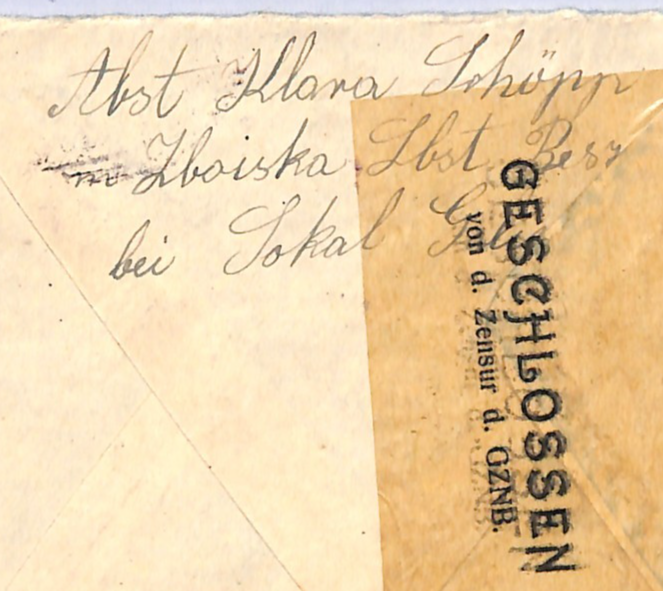 Abst Klara Schöpp
Zboiska Lbst Besz
bei Sokal
GESCHLOSSEN
von d. Zensur d. GZNB.